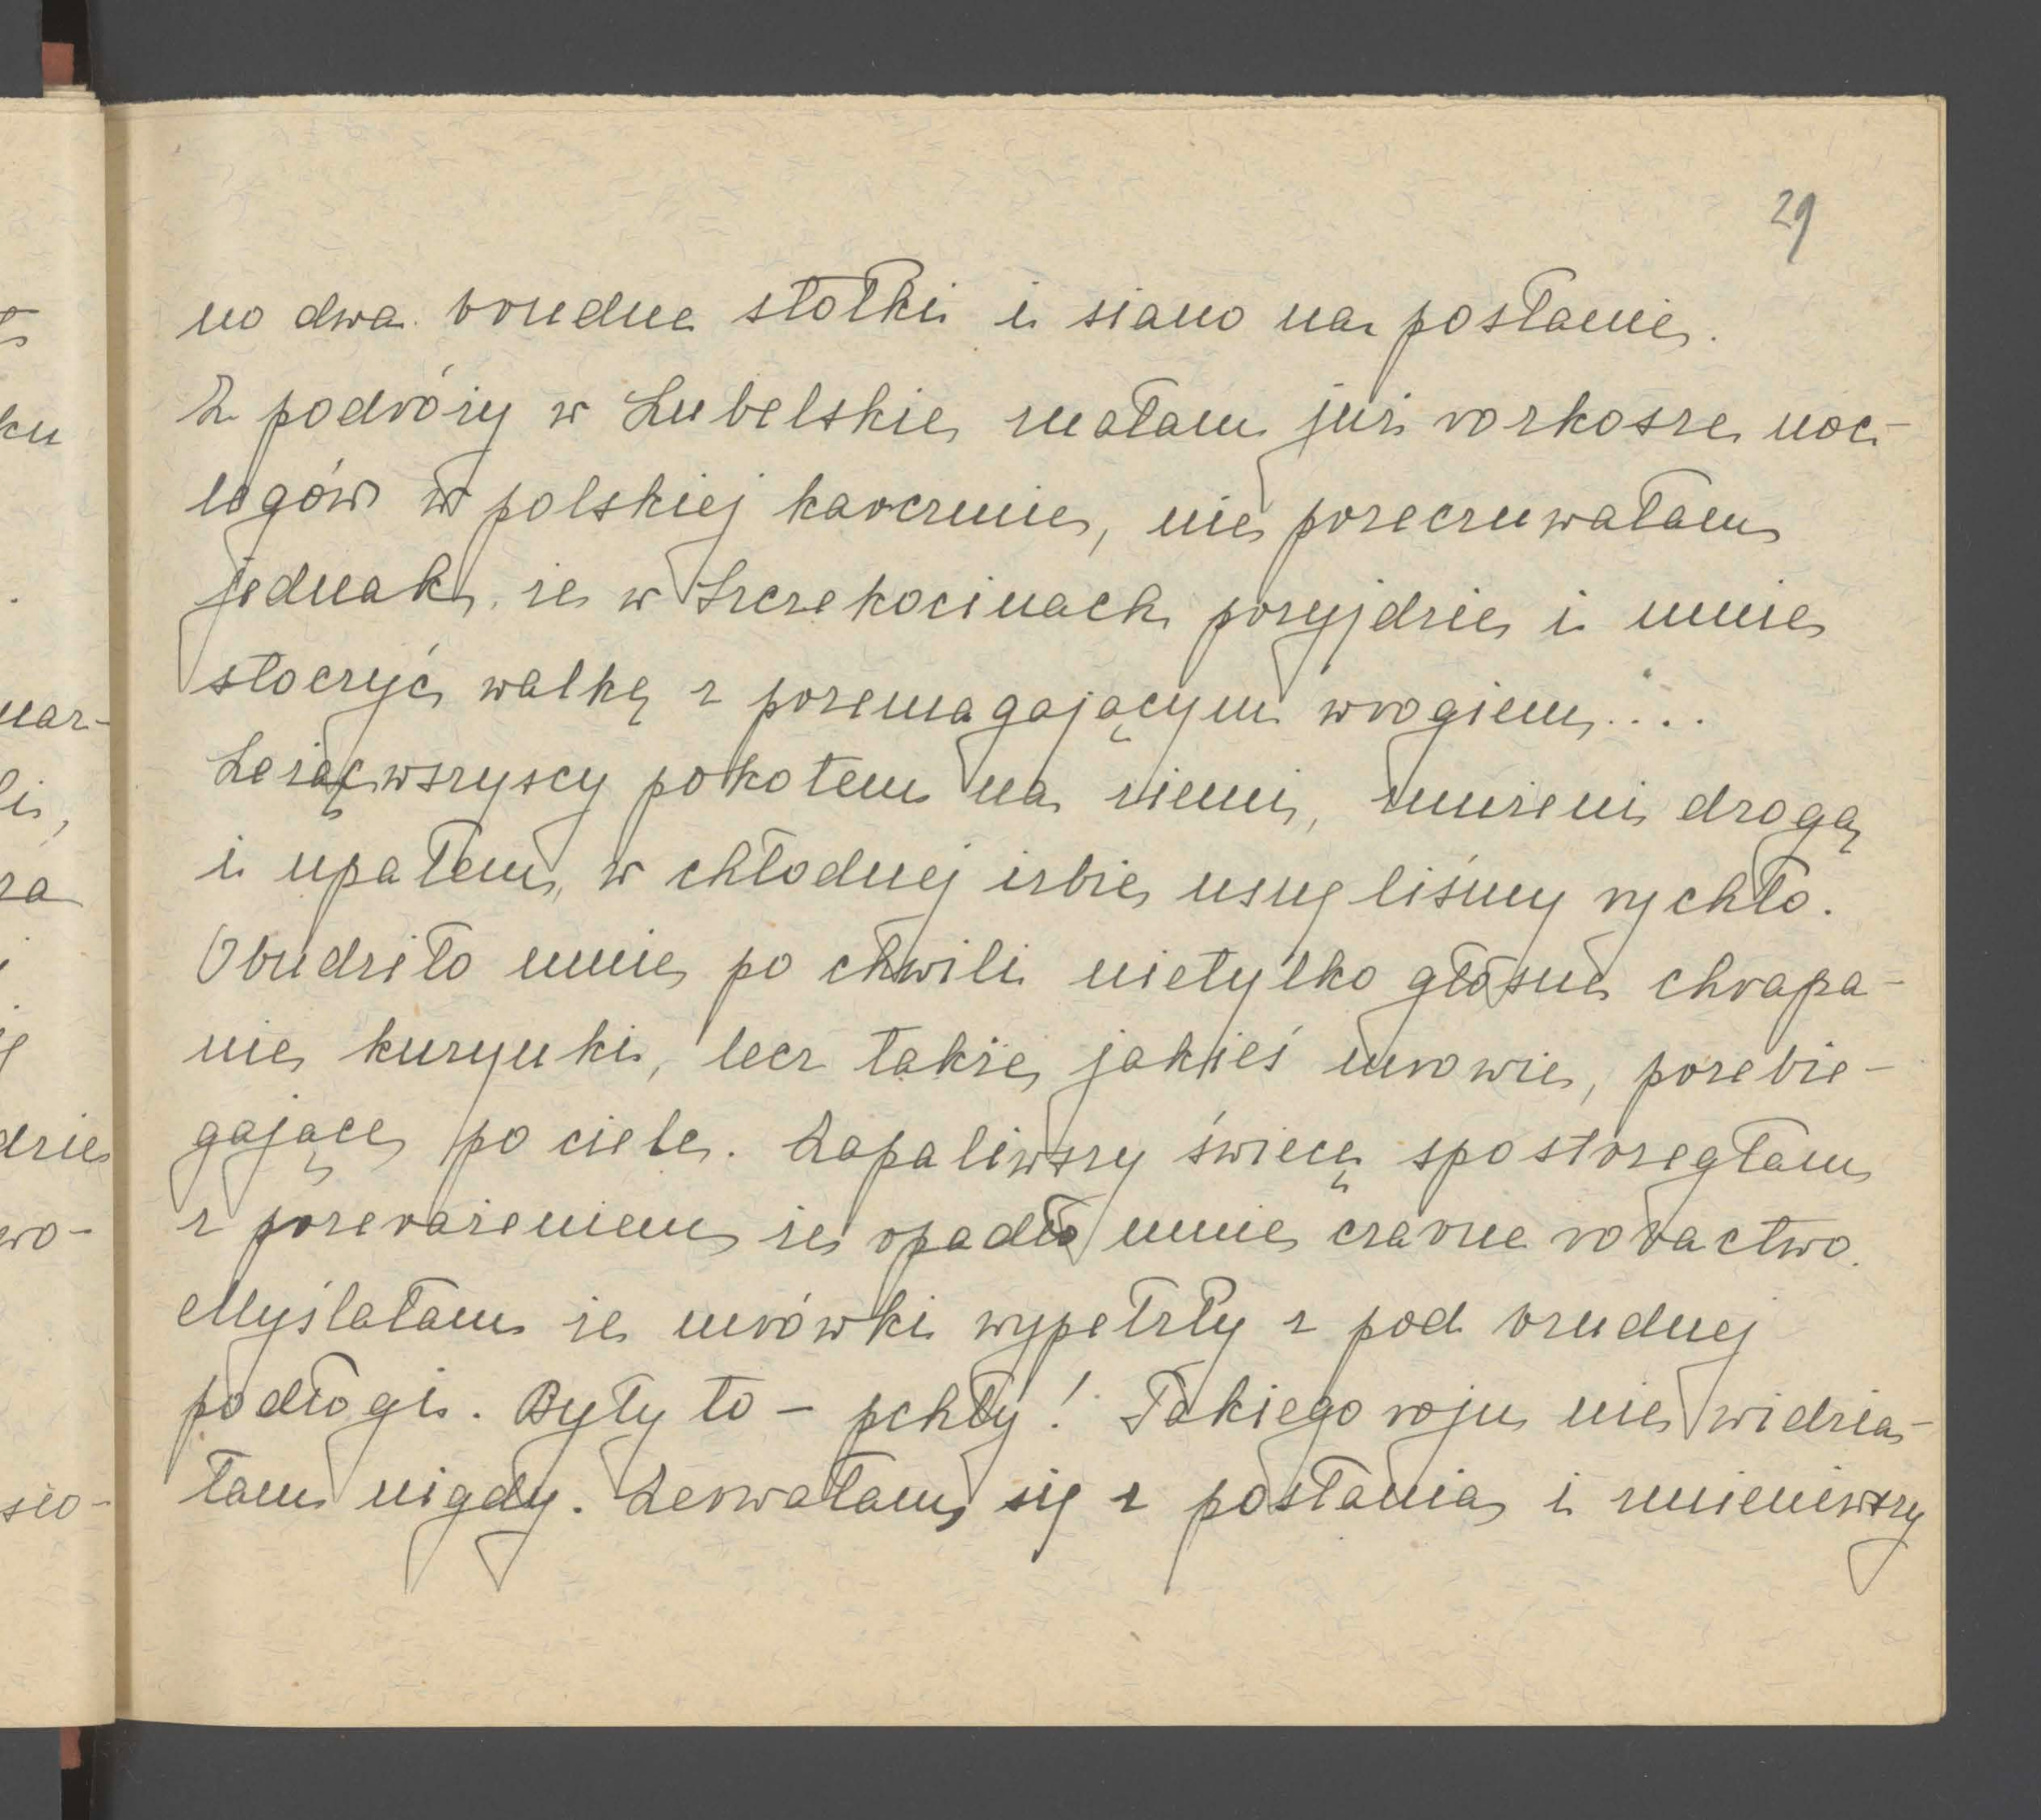 29
no dwa brudne stołki i siano na posłanie.
Z podróży w Lubelskie znałam już rozkosze noc-
legów w polskiej karczmie, nie przeczuwałam
jednak, że w Szczekocinach przyjdzie i mnie
stoczyć walkę z przemagającym wrogiem....
Leżąc wszyscy pokotem na ziemi, znużeni drogą
i upałem, w chłodnej izbie usnęliśmy rychło.
Obudziło mnie po chwili nietylko głośne chrapa-
nie kuzynki, lecz także jakieś mrowie, przebie-
gające po ciele. Zapaliwszy świecę spostrzegłam
z przerażeniem że opadło mnie czarne robactwo.
Myślałam że mrówki wypełzły z pod brudnej
podłogi. Były to – pchły! Takiego roju nie widzia-
łam nigdy. Zerwałam się z posłania i zmieniwszy
ku
nar-
li,
za
dzie
wo-
sio-